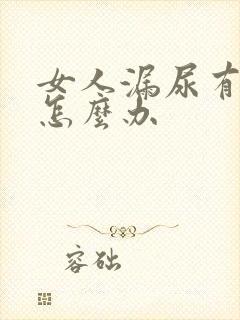 女人漏尿有
怎麼办
容础